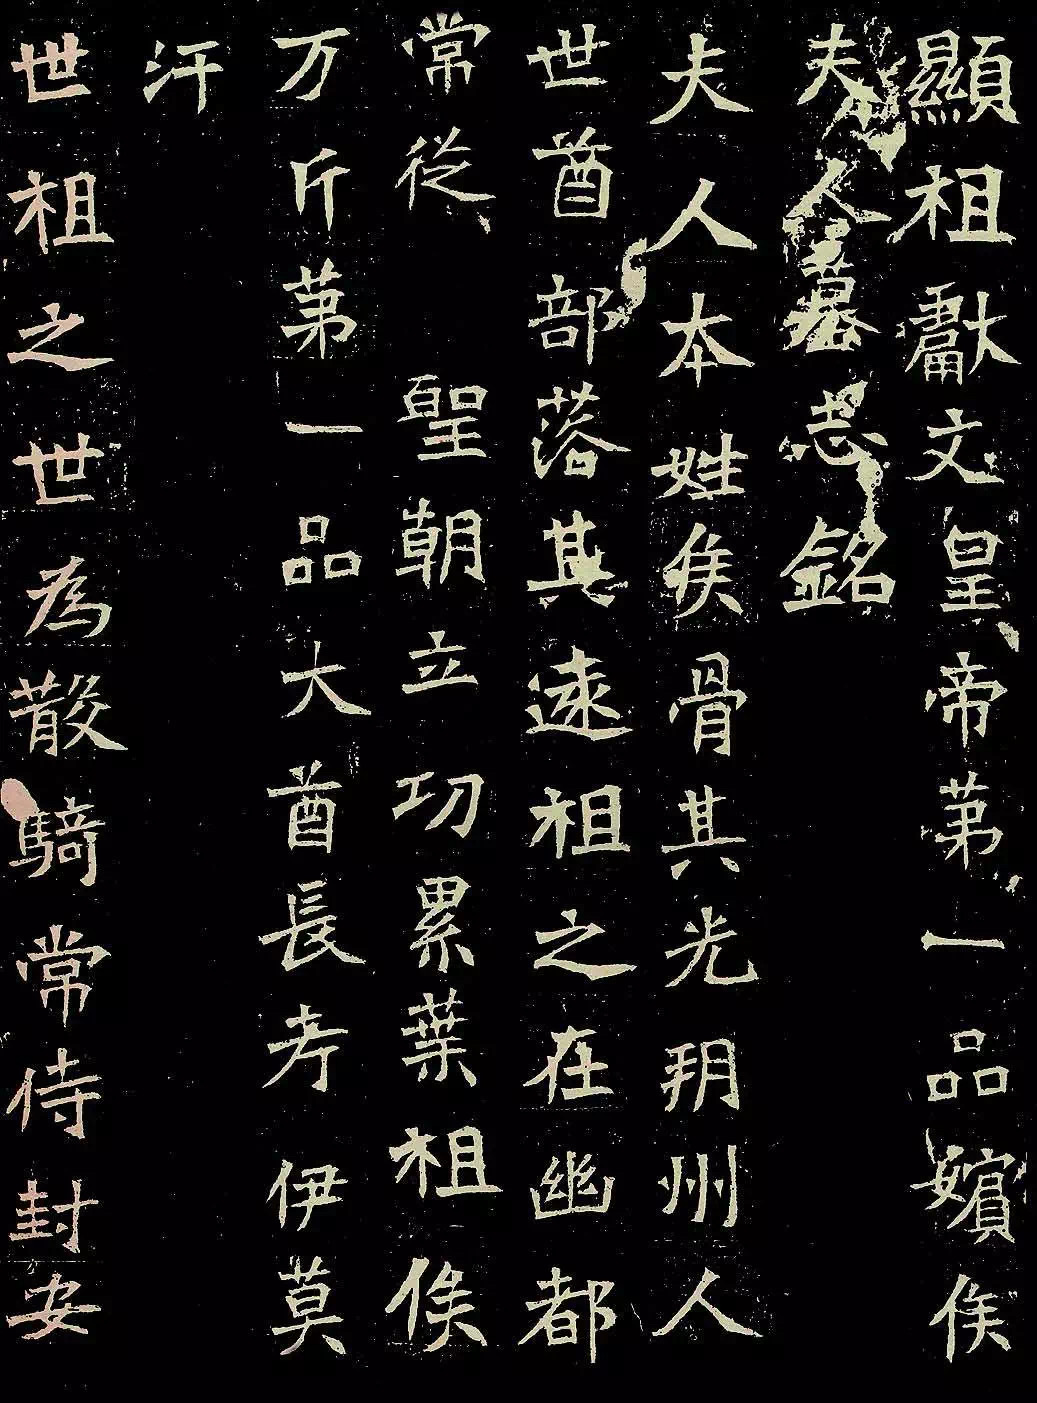 顯祖獻文皇帝第一品嬪侯
夫人墓志銘
夫人本姓侯骨其先朔州人
世酋部落其遠祖之在幽都
常從聖朝立功累葉祖俟
万斤第一品大酋長考伊莫
汗
世祖之世為散騎常侍封安